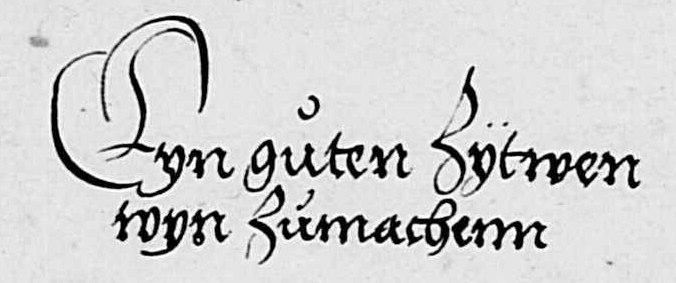 Eyn gůten Zÿtwen
wyn Zůmachenn